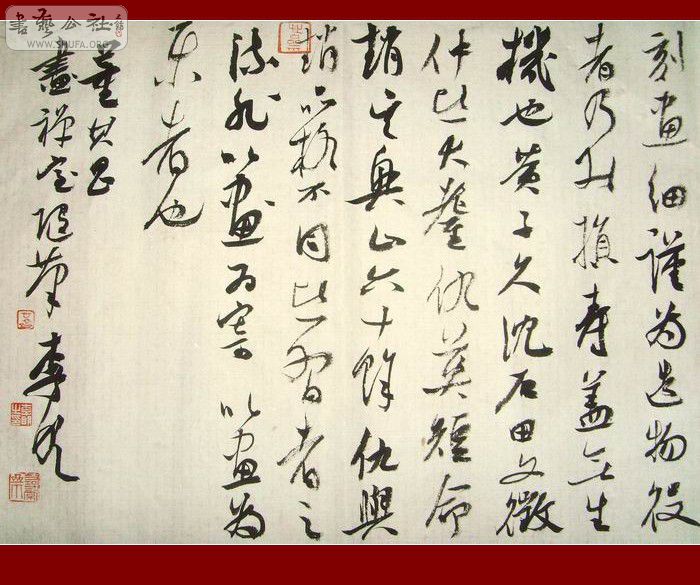 書藝公社
WWW.SHUFA.ORG
刻畫細謹為造物役
者乃能損壽蓋無生
機也黃子久沈石田文徵
仲皆大耋仇英短命
趙吳興止六十餘仇與
趙品格不同皆習者之
流非以畫為寄以畫為
樂者也
董其昌
畫禪室隨筆 李